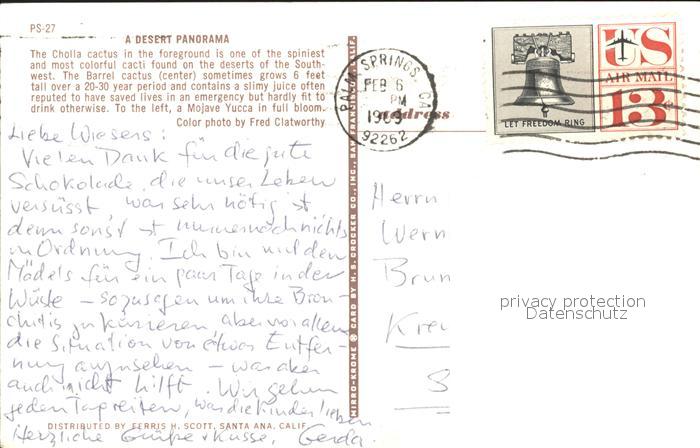 PS-27
A DESERT PANORAMA
The Cholla cactus in the foreground is one of the spiniest
and most colorful cacti found on the deserts of the South-
west. The Barrel cactus (center) sometimes grows 6 feet
tall over a 20-30 year period and contains a slimy juice often
reputed to have saved lives in an emergency but hardly fit to
drink otherwise. To the left, a Mojave Yucca in full bloom.
Color photo by Fred Clatworthy
Liebe Wiesens:
Vielen Dank für die gute
Schokolade, die unser Leben
versüsst, was sehr nötig ist
denn sonst ist immernoch nichts
in Ordnung. Ich bin mit den
Mädels für ein paar Tage in der
Wüste – sozusagen um ihre Bron-
chitis zu kurieren, aber vor allem
die Situation von etwas Entfer-
nung anzusehen – was aber
auch nicht hilft. Wir gehen
jeden Tag reiten, was die Kinder lieben
Herzliche Grüße + Küsse, Gerda.
DISTRIBUTED BY FERRIS H. SCOTT, SANTA ANA, CALIF.
MIRRO-KROME ® CARD BY H. S. CROCKER CO., INC., SAN FRANCISCO, CALIF.
Address
PALM SPRINGS, CA
FEB 6
PM
92262
LET FREEDOM RING
US
AIR MAIL
13c
Herrn
Wern
Brun
privacy protection
Datenschutz